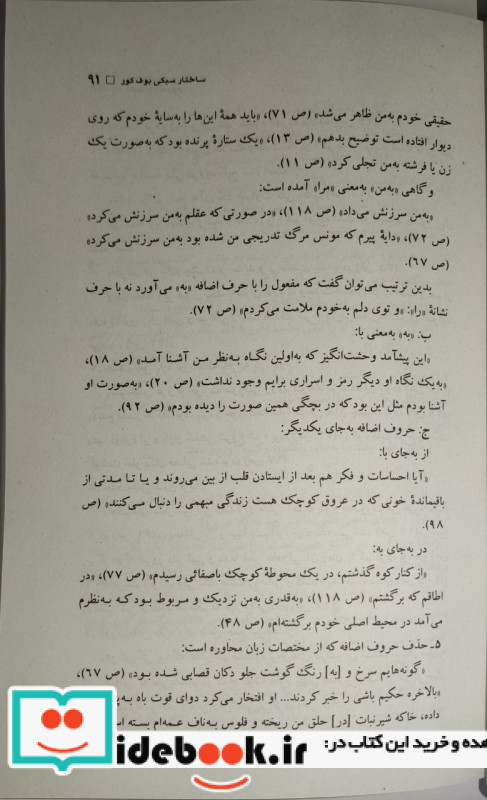 ساختار سبکی بوف کور □ ۹۱
حقیقی خودم به‌من ظاهر می‌شد» (ص ۷۱)، «باید همهٔ این‌ها را به‌سایهٔ خودم که روی
دیوار افتاده است توضیح بدهم» (ص ۱۳)، «یک ستارهٔ پرنده بود که به‌صورت یک
زن یا فرشته به‌من تجلی کرد» (ص ۱۱).
و گاهی «به‌من» به‌معنی «مرا» آمده است:
«به‌من سرزنش می‌داد» (ص ۱۱۸)، «در صورتی که عقلم به‌من سرزنش می‌کرد»
(ص ۷۲)، «دایهٔ پیرم که مونس مرگ تدریجی من شده بود به‌من سرزنش می‌کرد»
(ص ۶۷).
بدین ترتیب می‌توان گفت که مفعول را با حرف اضافه «به» می‌آورد نه با حرف
نشانهٔ «را»: «و توی دلم به‌خودم ملامت می‌کردم» (ص ۷۲).
ب: «به» به‌معنی با:
«این پیشآمد وحشت‌انگیز که به‌اولین نگاه به‌نظر من آشنا آمد» (ص ۱۸)،
«به‌یک نگاه او دیگر رمز و اسراری برایم وجود نداشت» (ص ۲۰)، «به‌صورت او
آشنا بودم مثل این بود که در بچگی همین صورت را دیده بودم» (ص ۹۲).
ج: حروف اضافه به‌جای یکدیگر:
از به‌جای با:
«آیا احساسات و فکر هم بعد از ایستادن قلب از بین می‌روند و یا تا مدتی از
باقیماندهٔ خونی که در عروق کوچک هست زندگی مبهمی را دنبال می‌کنند» (ص
۹۸).
در به‌جای به:
«از کنار کوه گذشتم، در یک محوطهٔ کوچک باصفائی رسیدم» (ص ۷۷)، «در
اطاقم که برگشتم» (ص ۱۱۸)، «به‌قدری به‌من نزدیک و مربوط بود که به‌نظرم
می‌آمد در محیط اصلی خودم برگشته‌ام» (ص ۴۸).
۵ـ حذف حروف اضافه که از مختصات زبان محاوره است:
«گونه‌هایم سرخ و [به] رنگ گوشت جلو دکان قصابی شده بود» (ص ۶۷)،
«بالاخره حکیم باشی را خبر کردند... او افتخار می‌کرد دوای قوت باه به
داده، خاکه شیرنیات [در] حلق من ریخته و فلوس به‌ناف عمه‌ام بسته
هده و خرید این کتاب در:
idebook.ir